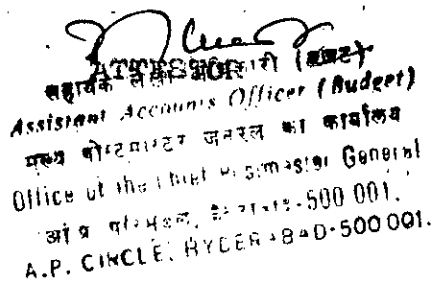 ATTESTOR
सहायक लेखा अधिकारी (बजट)
Assistant Accounts Officer (Budget)
मुख्य पोस्टमास्टर जनरल का कार्यालय
Office of the Chief Postmaster General
आंध्र -500 001.
A.P. CIRCLE, HYDERABAD-500 001.